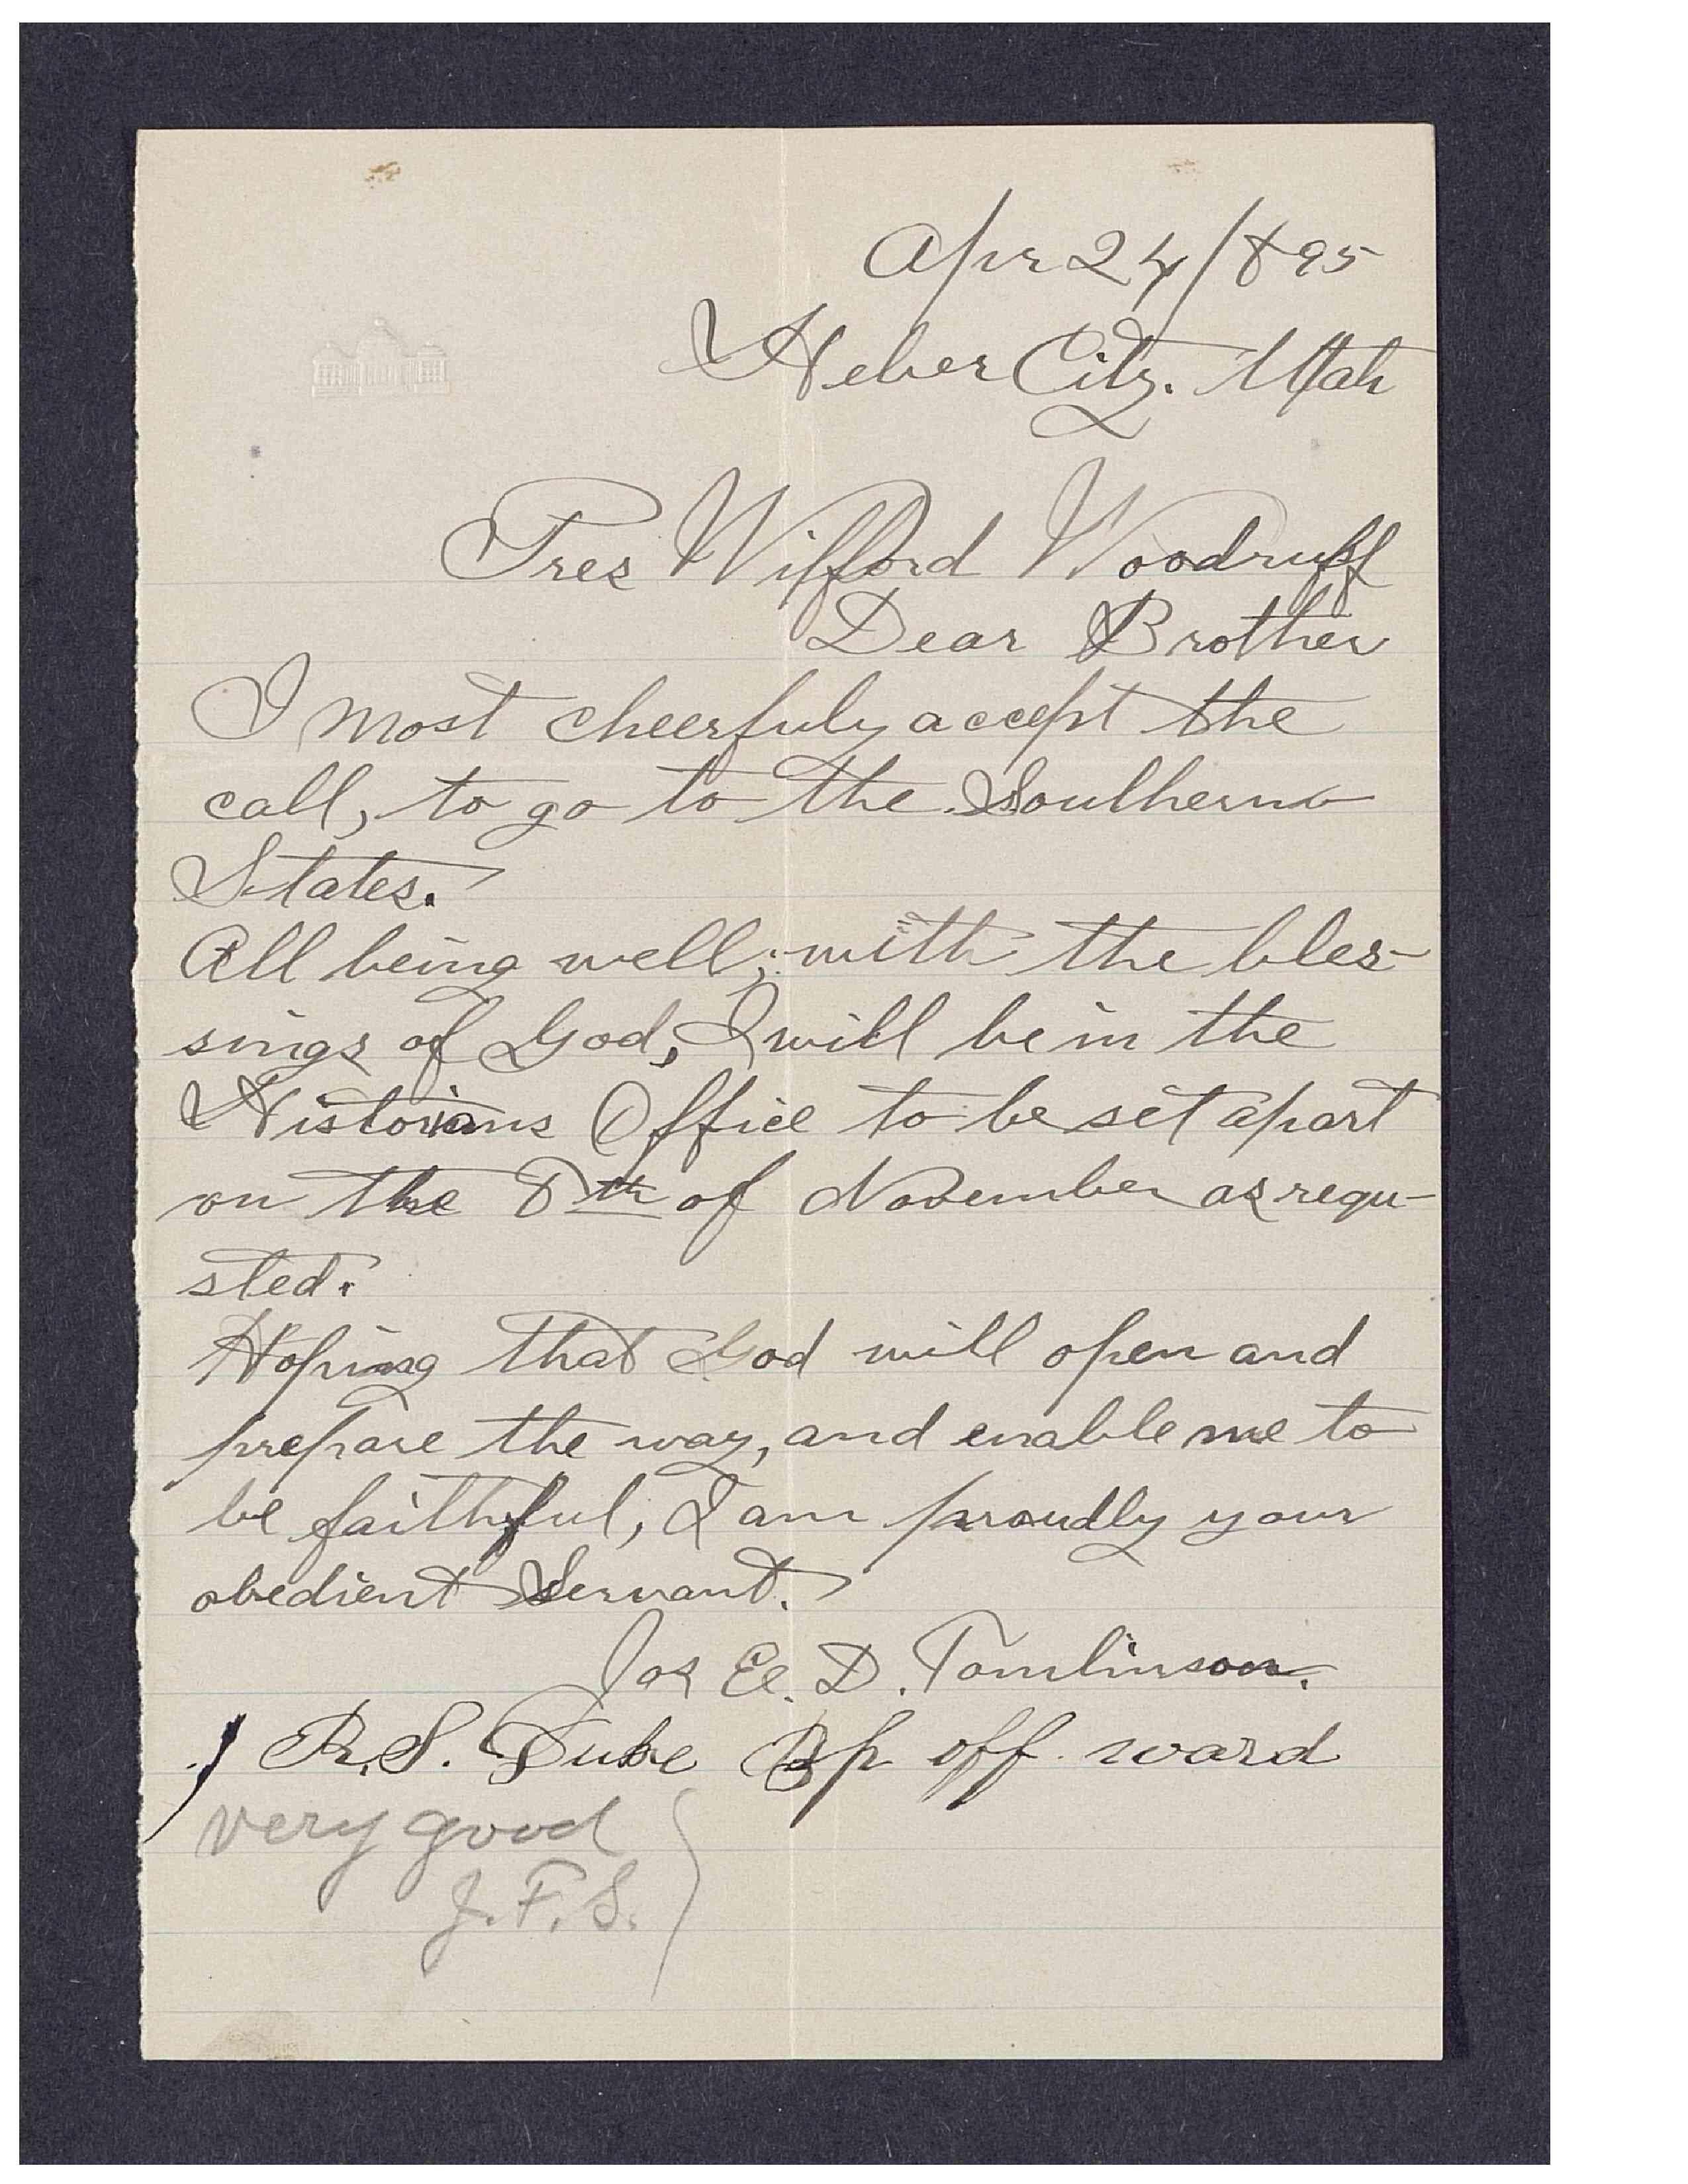 Apr 24/895
Heber City. Utah
Pres Wilford Woodruff
Dear Brother
I most cheerfuly accept the
call, to go to the Southern
States.
All being well; with the bles-
sings of God, I will be in the
Historians Office to be set apart
on the 8th of November as requ-
sted.
Hoping that God will open and
prepare the way, and enable me to
be faithful, I am proudly your
obedient Servant.
Jas E. D. Tomlinson.
R. S. Duke Bp off ward
very good
J. F. S.